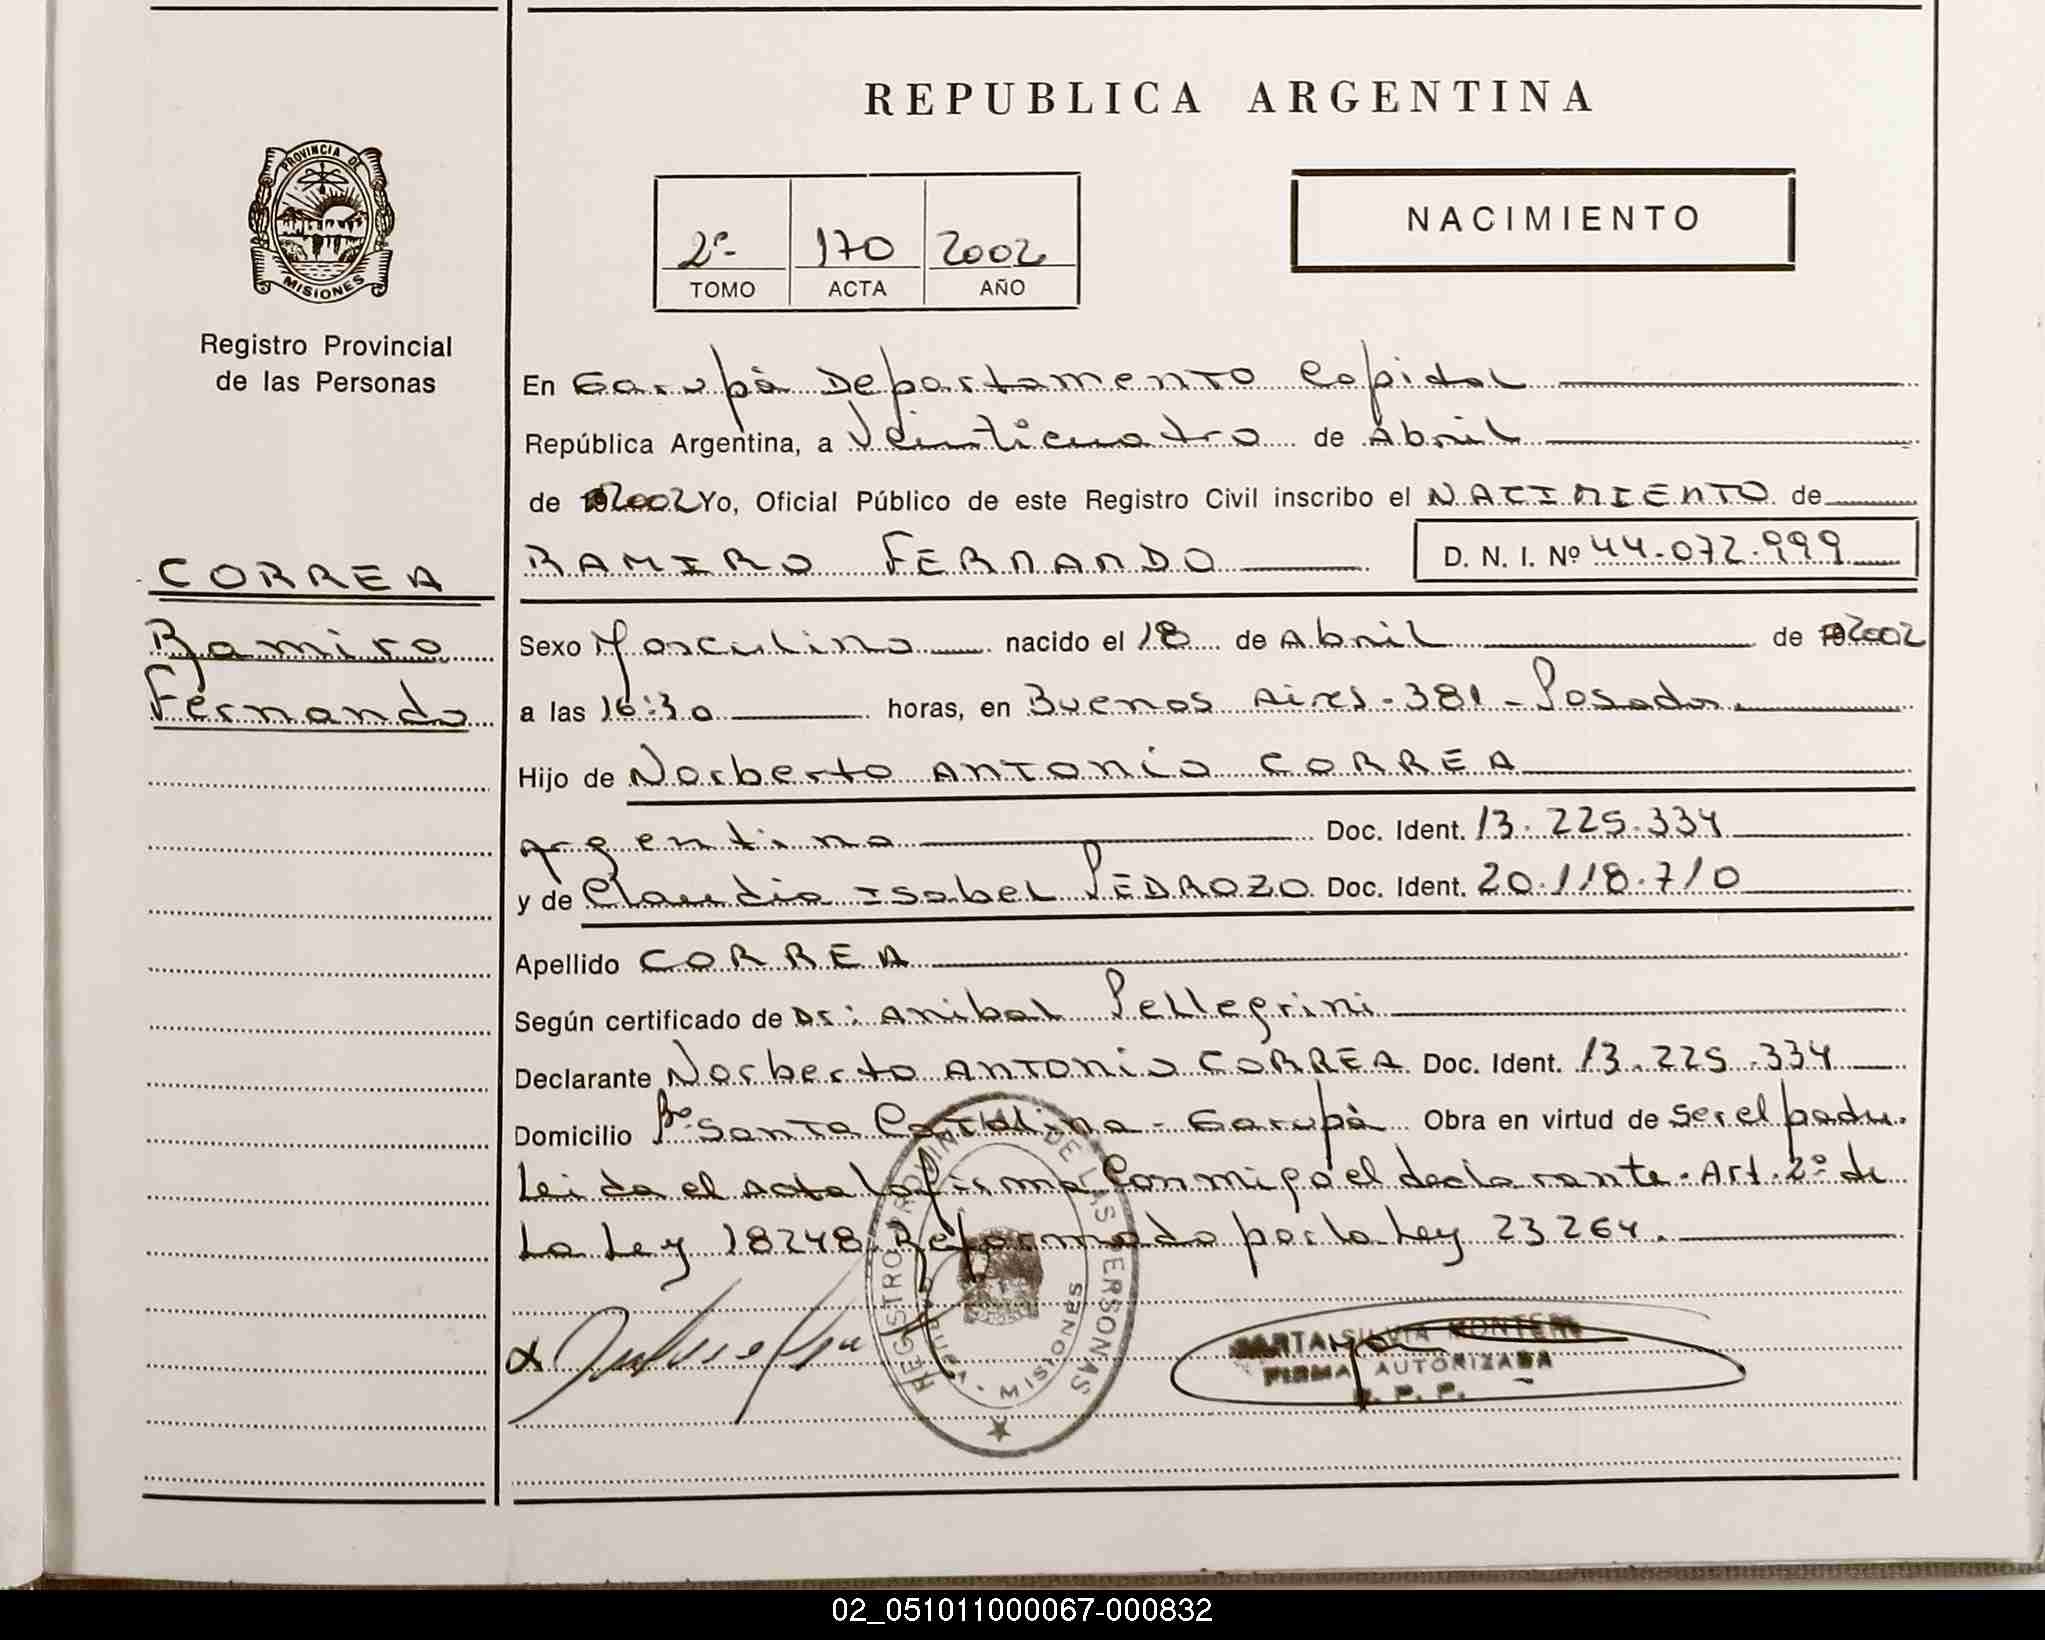 REPUBLICA ARGENTINA
PROVINCIA DE
MISIONES
Registro Provincial
de las Personas
NACIMIENTO
2º- 170 2002
TOMO ACTA AÑO
En Garupà Departamento Capital
República Argentina, a Veinticuatro de Abril
de 2002 Yo, Oficial Público de este Registro Civil inscribo el NACIMIENTO de
RAMIRO FERNANDO D. N. I. Nº 44.072.999
CORREA
Ramiro
Fernando
Sexo Masculino nacido el 18 de Abril de 2002
a las 16:30 horas, en Buenos Aires - 381 - Posadas
Hijo de Norberto ANTONIO CORREA
argentino Doc. Ident. 13.225.334
y de Claudia Isabel PEDROZO Doc. Ident. 20.118.710
Apellido CORREA
Según certificado de Dr: Anibal Pellegrini
Declarante Norberto ANTONIO CORREA Doc. Ident. 13.225.334
Domicilio Bº Santa Catalina - Garupà Obra en virtud de Ser el padre.
Leida el acta la firma Conmigo el declarante. Art. 2º de
La Ley 18248. Reformado por la Ley 23264.
REGISTRO PROVINCIAL DE LAS PERSONAS
GARUPA - MISIONES
SILVIA MONTERO
FIRMA AUTORIZADA
R. P. P.
02_051011000067-000832